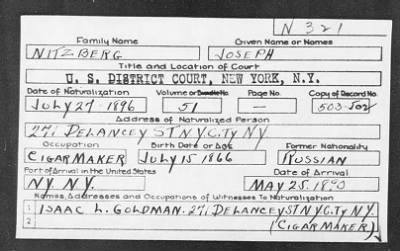 N 321
Family Name Given Name or Names
NITZBERG JOSEPH
Title and Location of Court
U. S. DISTRICT COURT, NEW YORK, N.Y.
Date of Naturalization Volume or Bundle No. Page No. Copy of Record No.
JULY 27 1896 51 — 503-502
Address of Naturalized Person
271 DELANCEY ST N.Y. CITY N.Y.
Occupation Birth Date or Age Former Nationality
CIGAR MAKER JULY 15 1866 RUSSIAN
Port of Arrival in the United States Date of Arrival
N.Y. N.Y. MAY 25. 1890
Names, Addresses and Occupations of Witnesses To Naturalization
1 ISAAC L. GOLDMAN. 271 DELANCEY ST N.Y. CITY N.Y.
2 (CIGAR MAKER)